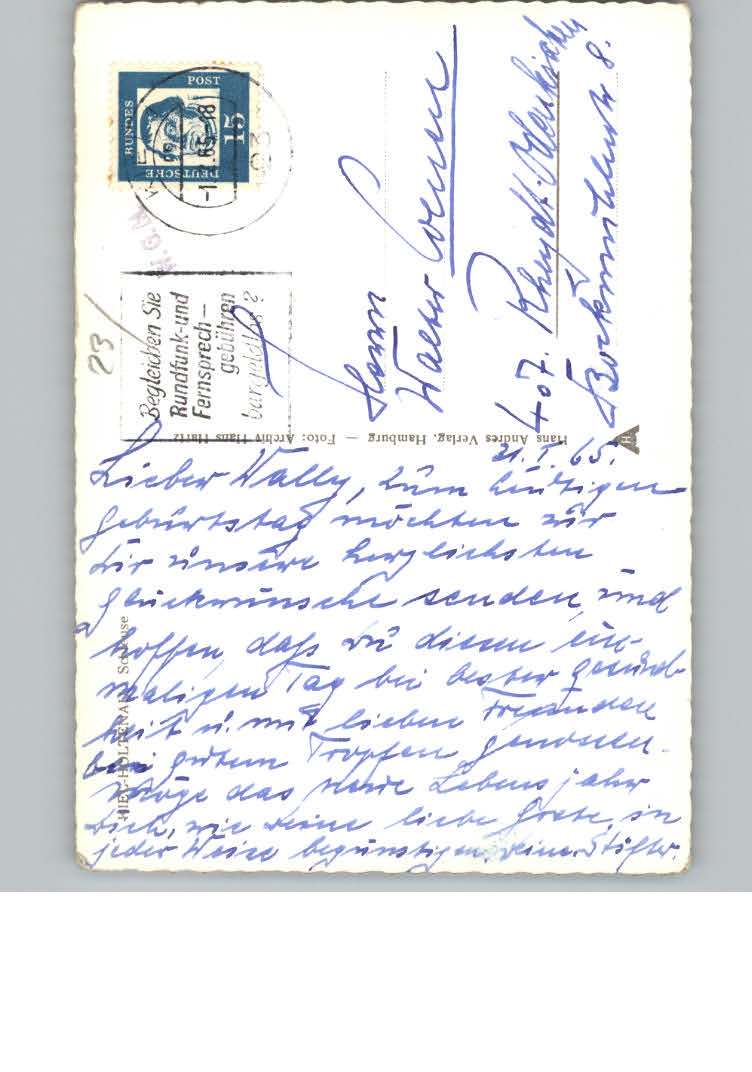 31.I.65.
Lieber Wally, zum heutigen
Geburtstag möchten wir
dir unsere herzlichsten
Glückwünsche senden und
hoffen, daß du diesen ein-
maligen Tag bei bester Gesund-
heit u. mit lieben Freunden
bei gutem Tropfen genossen.
Möge das neue Lebensjahr
dich, wie deine liebe Grete, in
jeder Weise begünstigen. deine
Herrn
Walter
407. Rheydt-Odenkirchen
8.
DEUTSCHE
BUNDES
POST
15
-1.2.65-18
Begleichen Sie
Rundfunk-und
Fernsprech-
gebühren
bargeldlos?
23
Hans Andres Verlag, Hamburg — Foto: Archiv Hans Hartz
HA
KIEL-HOLTENAU, Schleuse